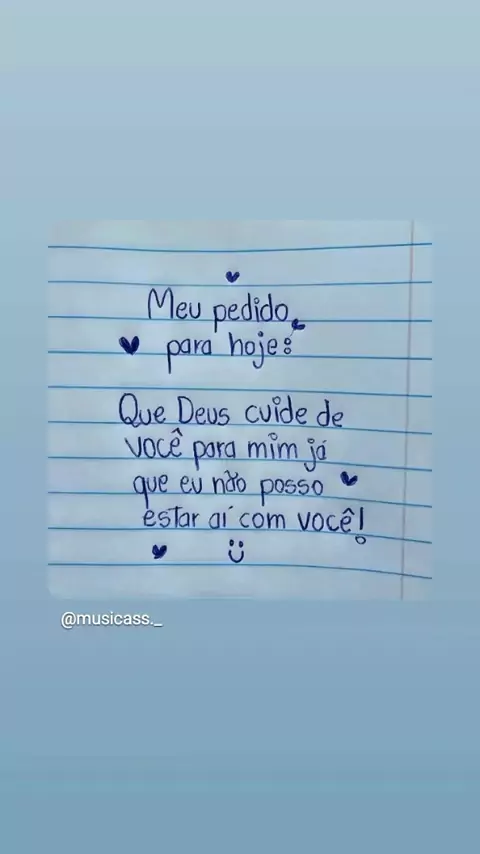 Meu pedido
para hoje:
Que Deus cuide de
você para mim já
que eu não posso
estar aí com você!
@musicass._